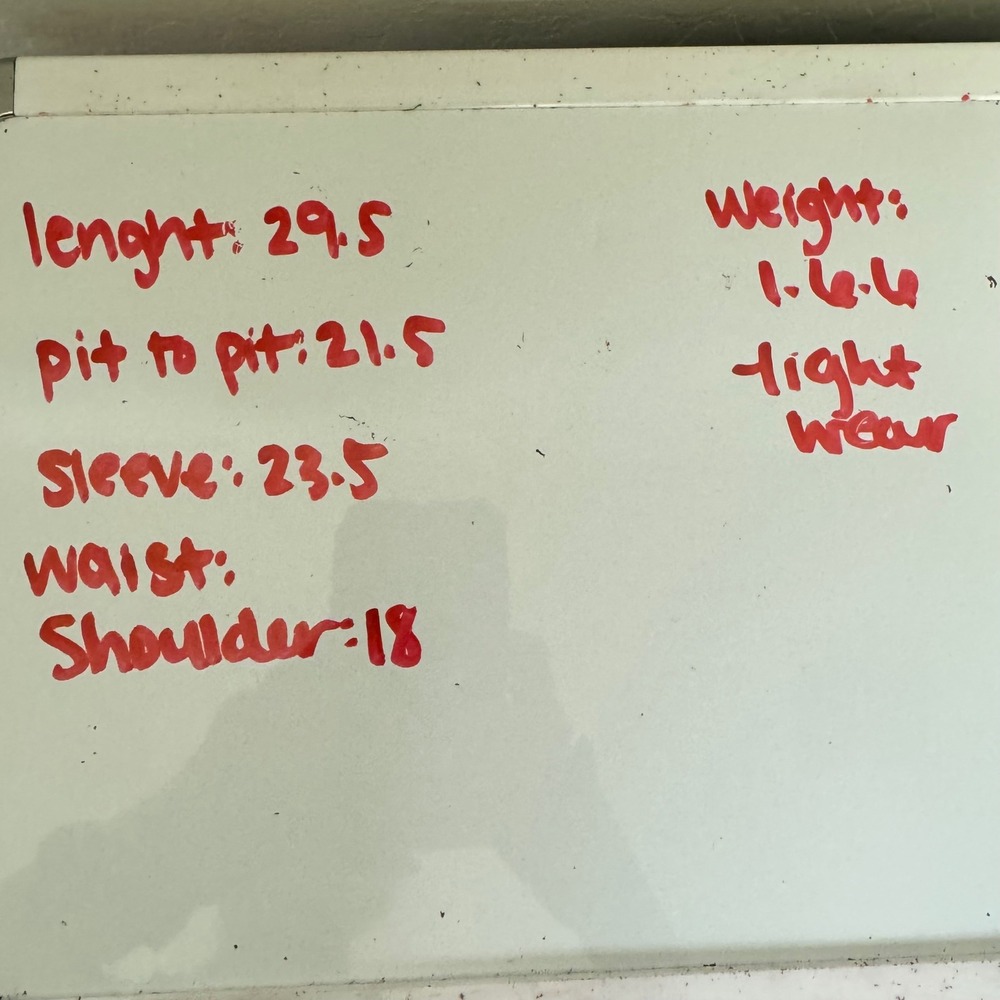 lenght: 29.5
pit to pit: 21.5
sleeve: 23.5
waist:
Shoulder: 18
weight:
1.6.6
-light
wear